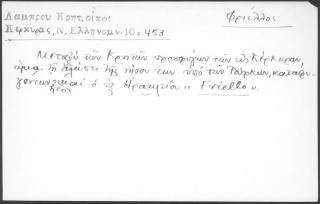 Λαμπρου Κρητ. οικοι
Κερκυρας, Ν. Ελληνομν. 10. σ. 453
Φριέλλος
Μεταξὺ τῶν Κρητῶν προσφύγων τῶν εἰς Κέρκυραν,
ἅμα τῇ ἁλώσει τῆς νήσου των ὑπὸ τῶν Τούρκων, καταφυ-
γόντων καὶ ὁ ἐξ Ἡρακλείου « Friello ».